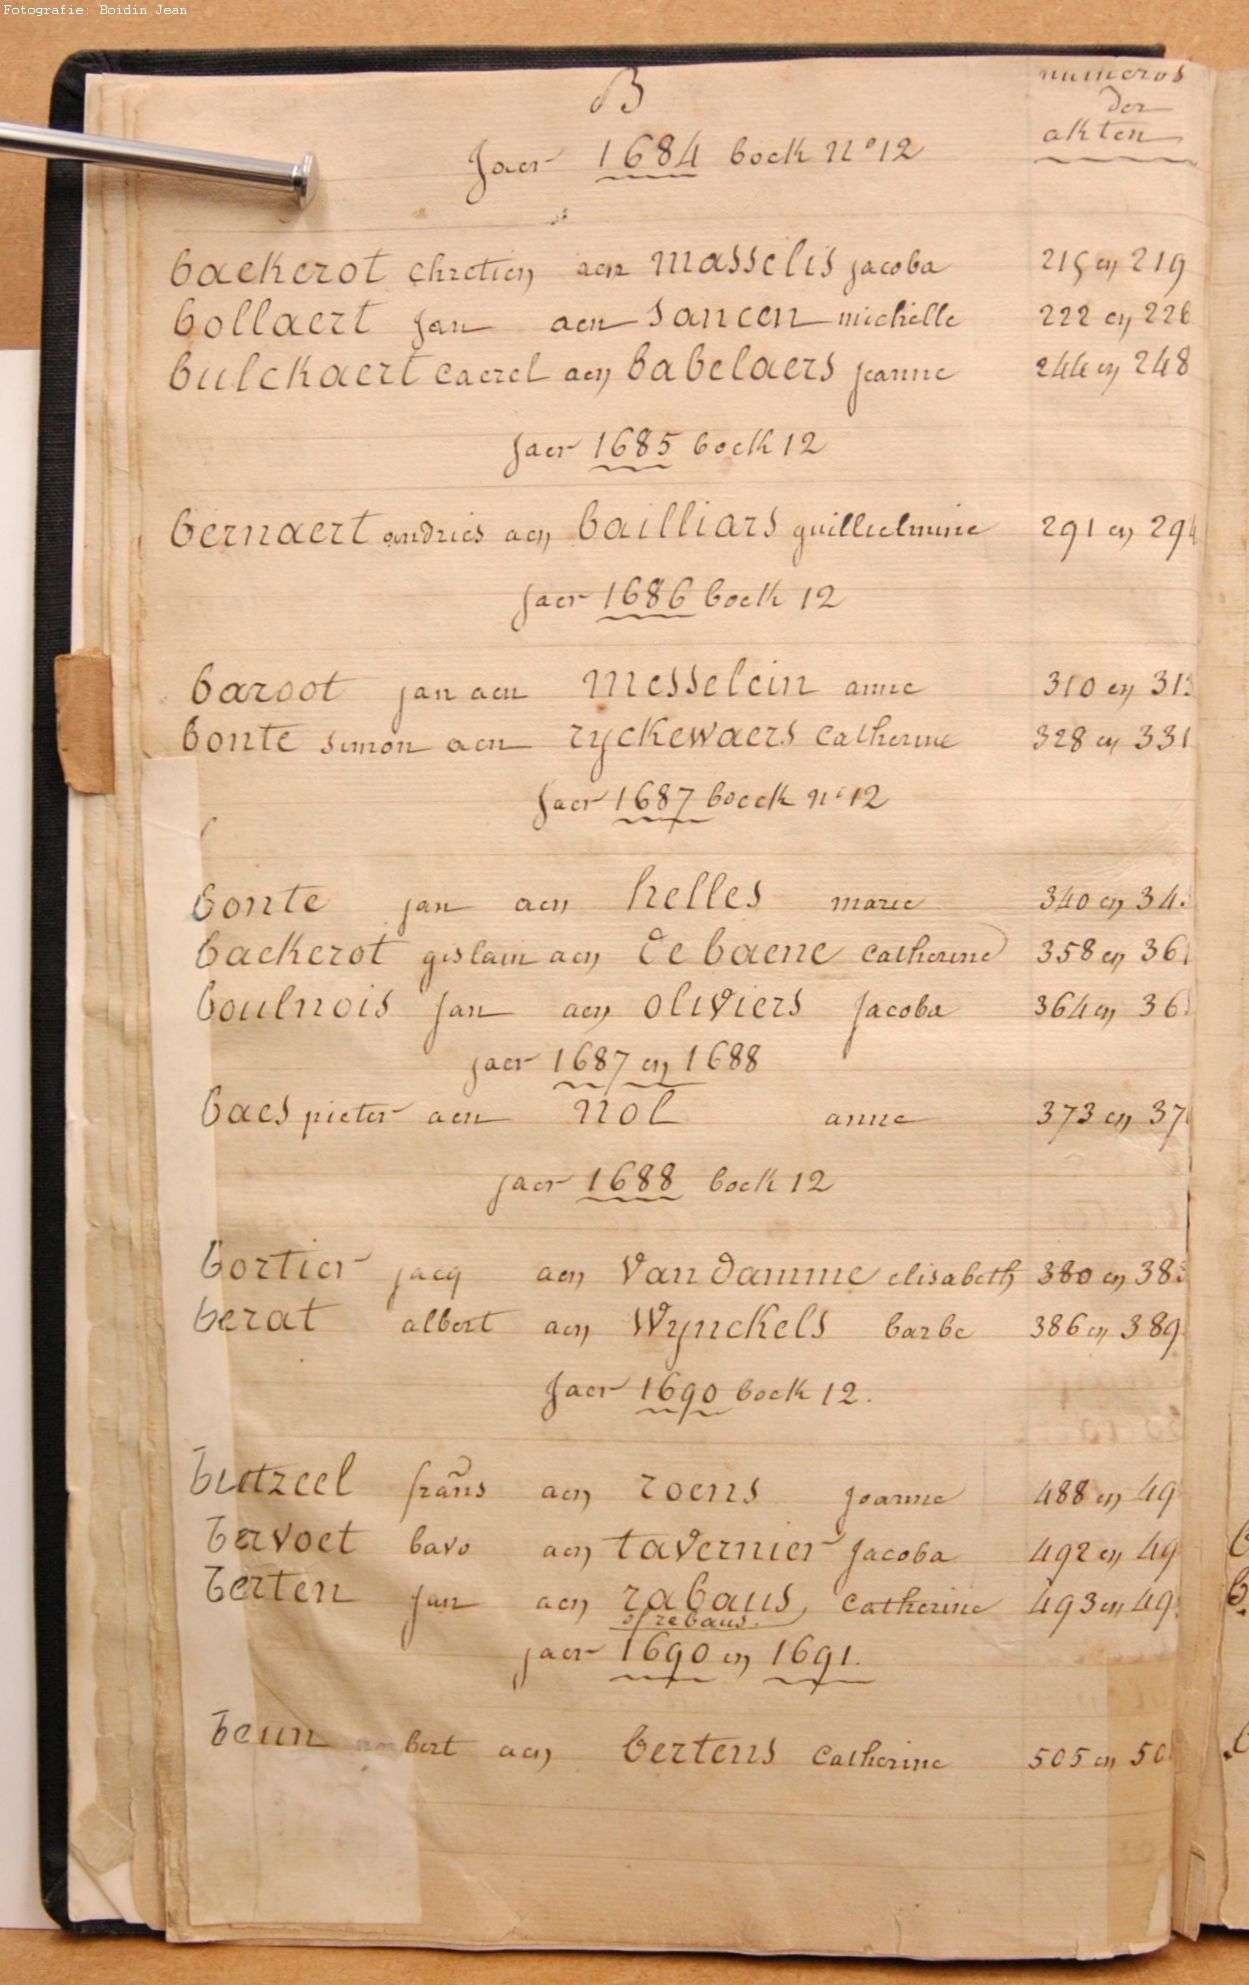 Fotografie: Boidin Jean
B
numeros
der
akten
Jaer 1684 boek No 12
backerot chretien aen masselis jacoba 215 en 219
bollaert jan aen sancen michelle 222 en 226
bulckaert caerel aen babelaers jeanne 244 en 248
jaer 1685 boek 12
bernaert andries aen bailliars guillielmine 291 en 294
jaer 1686 boek 12
baroot jan aen messelein anne 310 en 313
bonte simon aen ryckewaers catherine 328 en 331
jaer 1687 boeck no 12
bonte jan aen helles marie 340 en 34
backerot gislain aen de baene catherine 358 en 361
boulnois jan aen oliviers jacoba 364 en 36
jaer 1687 en 1688
baes pieter aen nol anne 373 en 37
jaer 1688 boek 12
bortier jacq aen van damme elisabeth 380 en 383
berat albert aen wynckels barbe 386 en 389
Jaer 1690 boek 12.
butzeel frans aen roens joanne 488 en 49
bervoet bavo aen tavernier jacoba 492 en 49
berten jan aen rabaus, catherine 493 en 49
of rebaus.
jaer 1690 en 1691.
beun bert aen bertens catherine 505 en 50